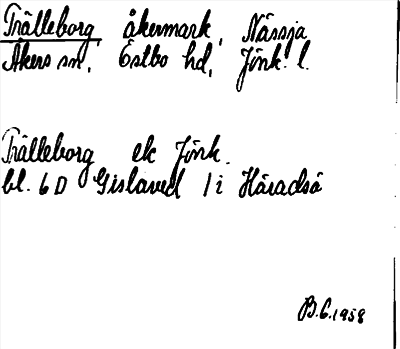 Trälleborg åkermark, Nässja
Åkers sn, Östbo hd, Jönk. l.
Trälleborg ek Jönk.
bl. 6 D Gislaved 1 i Häradsö
B.G. 1958